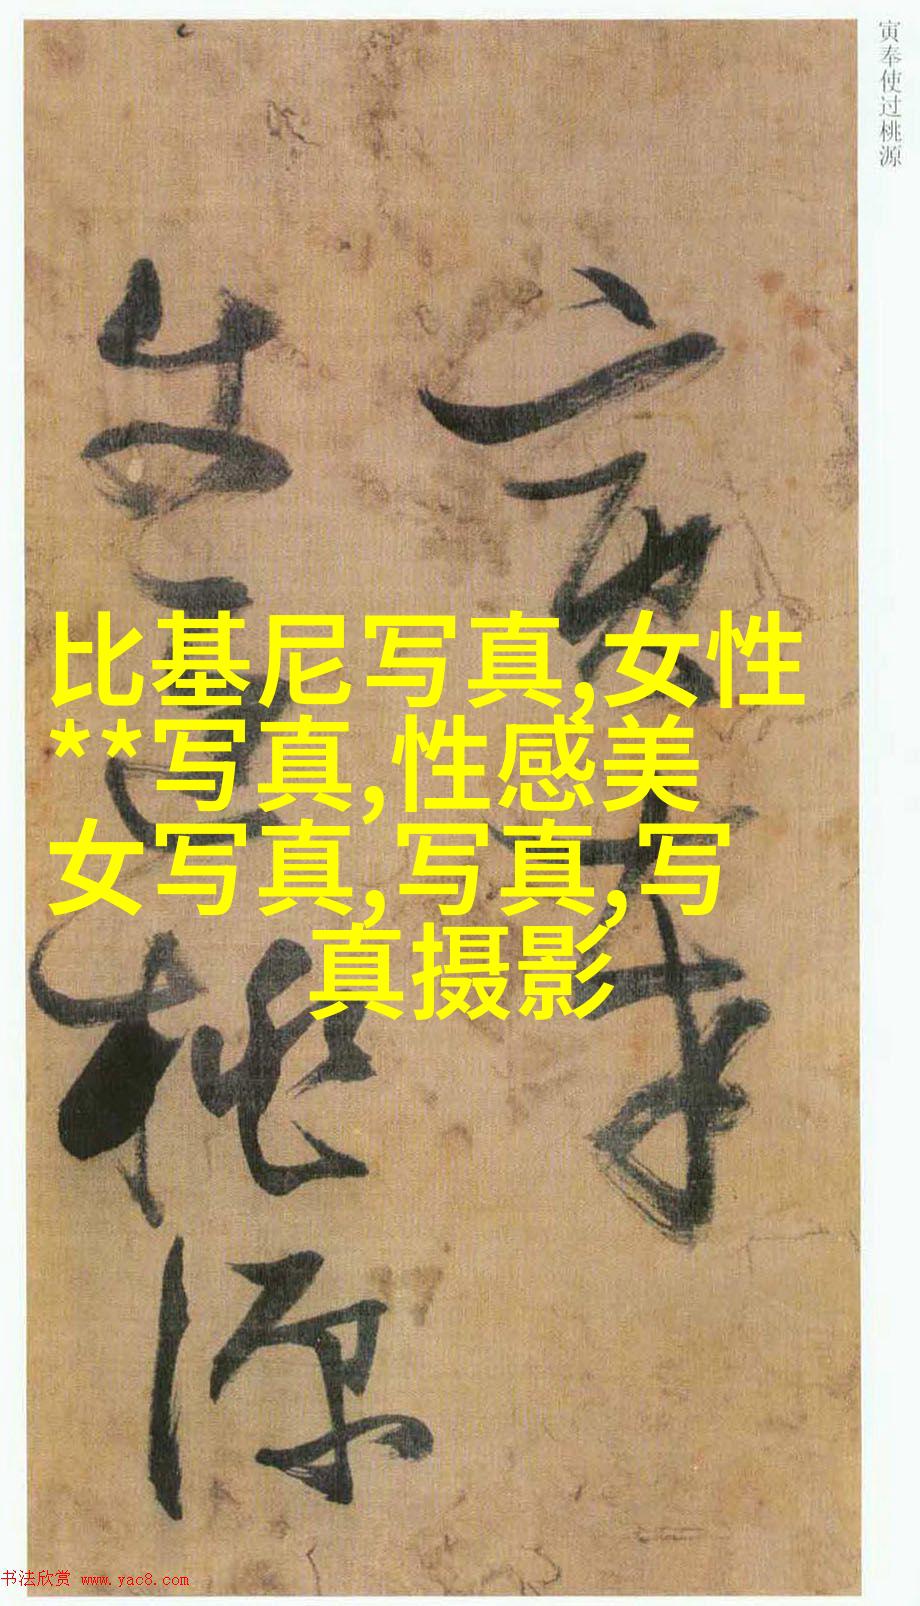 寅奉使过桃源
寅奉
使过桃源
比基尼写真,女性
**写真,性感美
女写真,写真,写
真摄影
书法欣赏 www.yac8.com